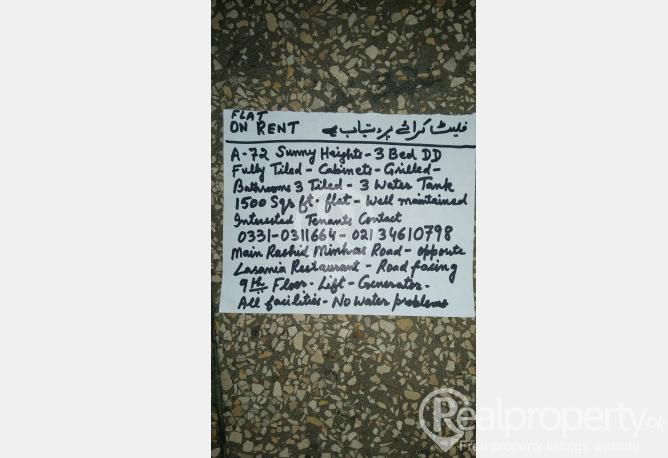 FLAT
ON RENT فلیٹ کرائے پر دستیاب ہے
A-72 Sunny Heights - 3 Bed DD
Fully Tiled - Cabinets - Grilled -
Bathrooms 3 Tiled - 3 Water Tank
1500 Sqs ft. flat - Well maintained
Interested Tenants Contact
0331-0311664 - 021 34610798
Main Rashid Minhas Road - opposite
Lasania Restaurant - Road facing
9th Floor - Lift - Generator -
All facilities - No Water problems
Realproperty.pk
Free property listings website